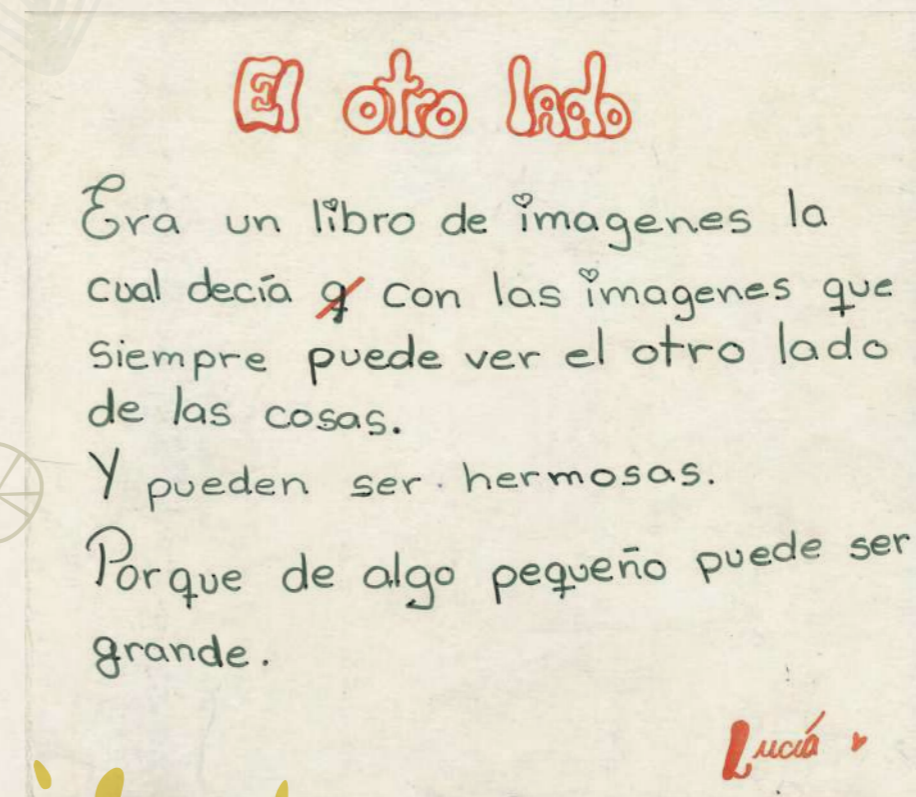 El otro lado
Era un libro de imagenes la
cual decía q con las imagenes que
siempre puede ver el otro lado
de las cosas.
Y pueden ser hermosas.
Porque de algo pequeño puede ser
grande.
Lucía